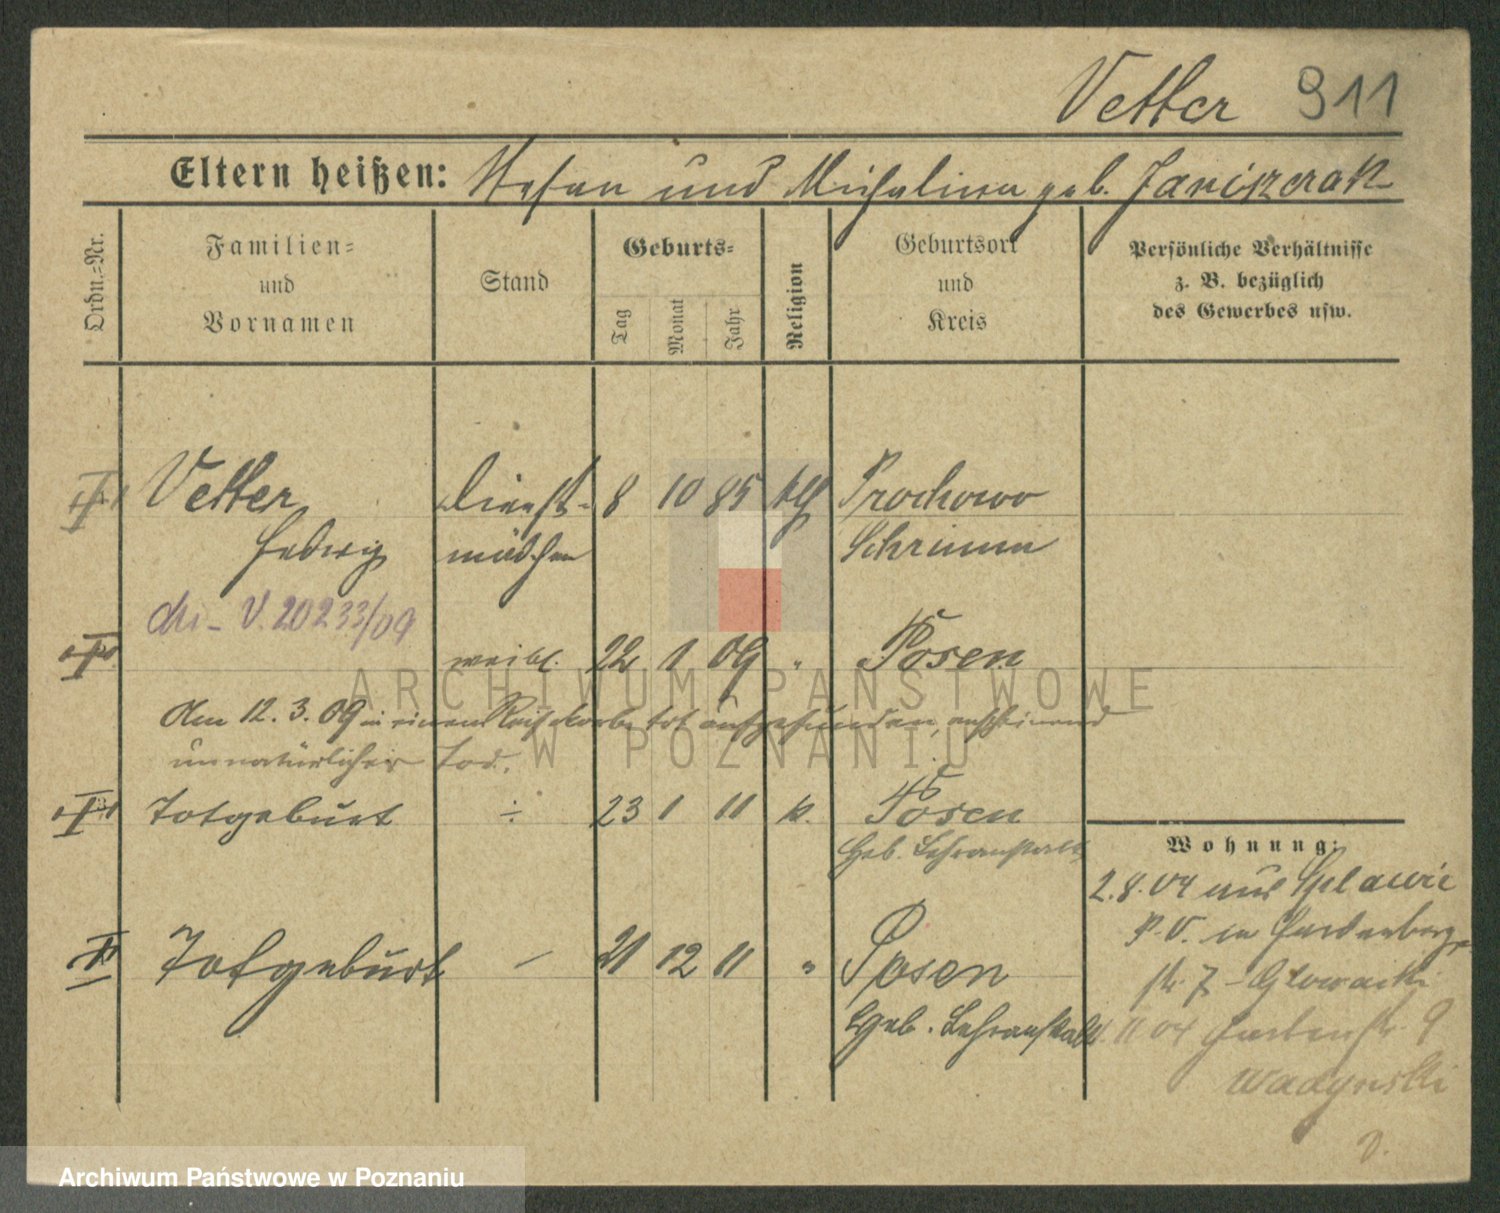 Vetter 911
Eltern heißen: Stefan und Michalina geb. Janiszczak
Ordn.-Nr.
Familien- und Vornamen
Stand
Geburts-
Tag Monat Jahr
Religion
Geburtsort und Kreis
Persönliche Verhältnisse z. B. bezüglich des Gewerbes usw.
Vetter Dienst- 8 10 85 kth Prochowo
Hedwig mädchen Schrimm
V. 20233/09
weibl. 22 1 09 " Posen
Am 12.3.09 in einem Reisekorbe tot aufgefunden, anscheinend
unnatürlicher Tod.
Totgeburt ÷ 23 1 11 k. Posen
Geb. Lehranstalt
Totgeburt — 21 12 11 " Posen
Geb. Lehranstalt
Wohnung:
2.8.04 aus
P.V. in
str 7 - Glowacki
11 04 Gartenstr. 9
Wadynski
ARCHIWUM PAŃSTWOWE
W POZNANIU
Archiwum Państwowe w Poznaniu